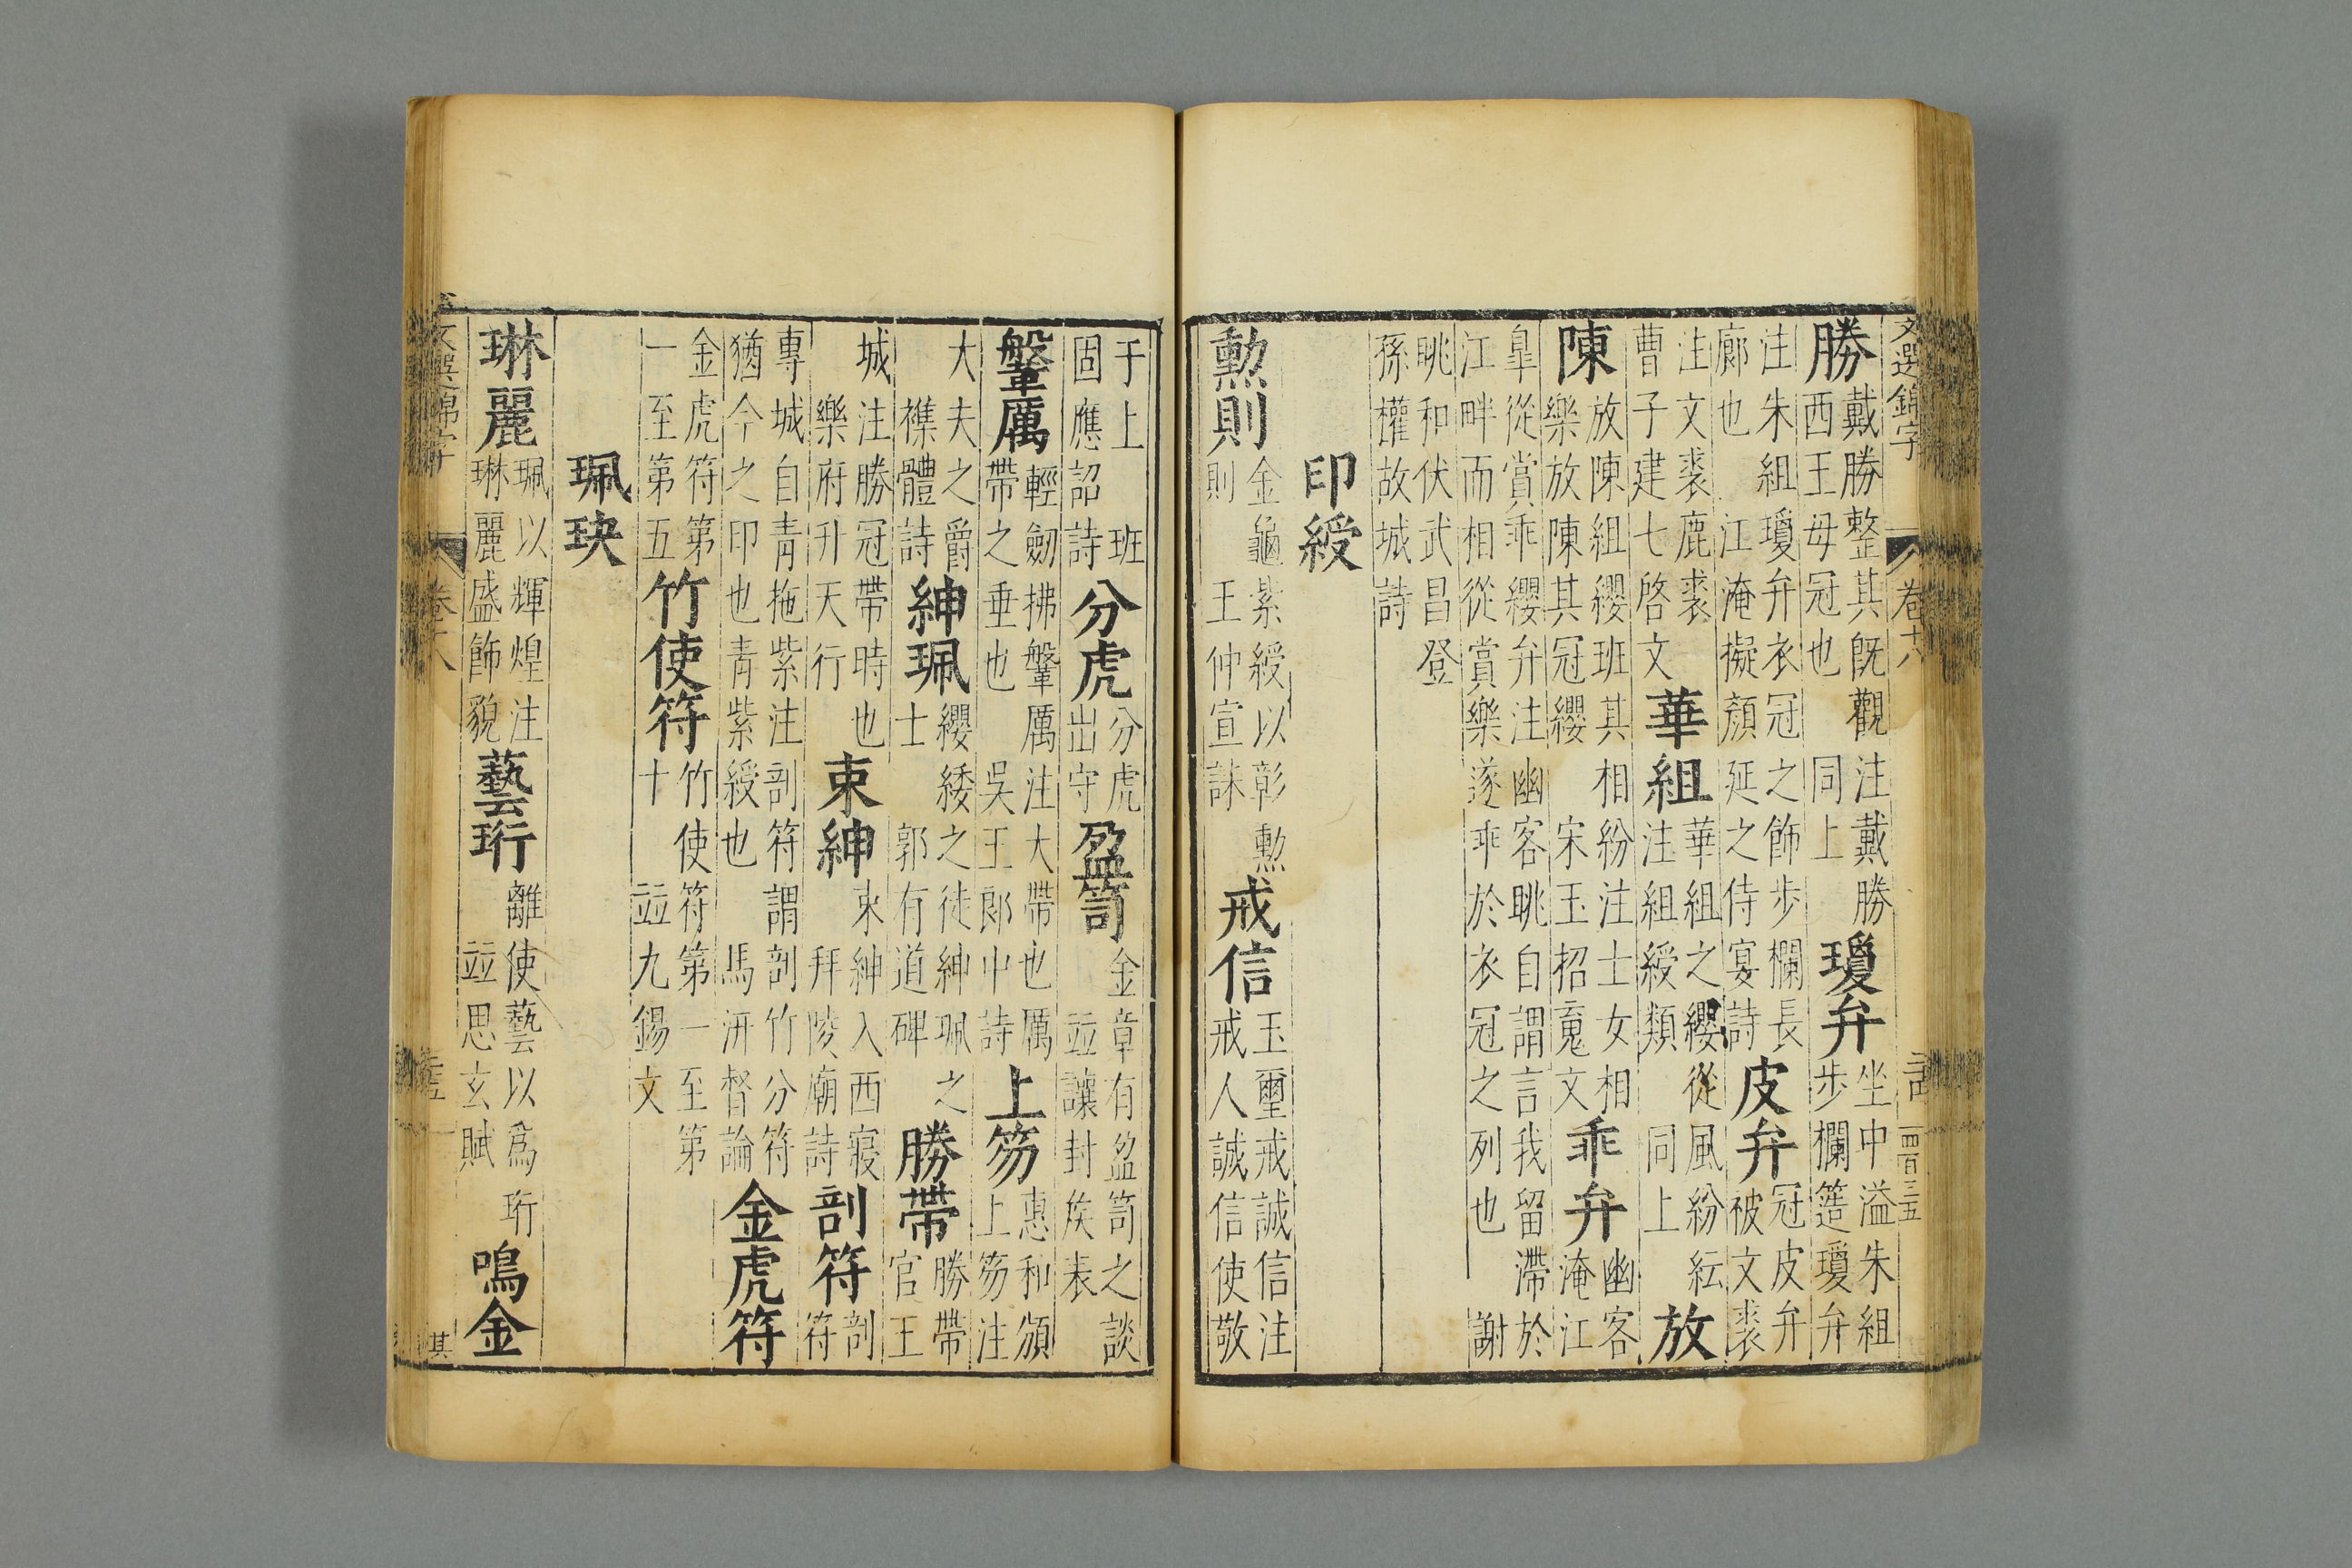 文選錦字 卷十八 三四 四百三五
勝 戴勝整其既觀注戴勝西王母冠也 同上 瓊弁 坐中溢朱組步欄簉瓊弁
注朱組瓊弁衣冠之飾步欄長廊也 江淹擬顏延之侍宴詩 皮弁 冠皮弁被文裘
注文裘鹿裘曹子建七啓文 華組 華組之纓從風紛紜注組綬類 同上 放
陳 放陳組纓班其相紛注士女相樂放陳其冠纓 宋玉招䰟文 乖弁 幽客淹江
皐從賞乖纓弁注幽客眺自謂言我留滯於江畔而相從賞樂遂乖於衣冠之列也 謝
眺和伏武昌登孫權故城詩
印綬
勲則 金龜紫綬以彰勲則 王仲宣誄 戒信 玉璽戒誠信注戒人誠信使敬
于上 班固應詔詩 分虎 分虎出守 盈笥 金章有盈笥之談 竝讓封矦表
鞶厲 輕劒拂鞶厲注大帶也厲帶之垂也 吳王郎中詩 上笏 惠和頒上笏注
大夫之爵 襍體詩 紳珮 纓緌之徒紳珮之士 郭有道碑 勝帶 勝帶官王
城注勝冠帶時也 樂府升天行 束紳 束紳入西寢 拜陵廟詩 剖符 剖符
專城自青拖紫注剖符謂剖竹分符猶今之印也青紫綬也 馬汧督論 金虎符
金虎符第一至第五 竹使符 竹使符第一至第十 竝九錫文
珮玦
琳麗 珮以輝煌注琳麗盛飾貌 藝珩 離使藝以爲珩 竝思玄賦 鳴金
文選錦字 卷十八 三五 其